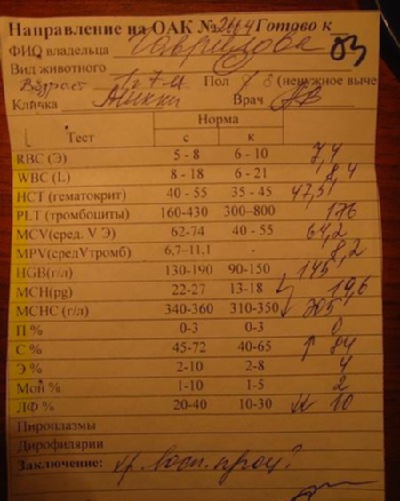 Направление на ОАК № 2664 Готово к
ФИО владельца Гаврилова 03
Вид животного
Возраст 1г 7м Пол ♀ ♂ (ненужное выче
Кличка Микки Врач
Тест Норма
с к
RBC (Э) 5 - 8 6 - 10 7,4
WBC (L) 8 - 18 6 - 21 8,4
HCT (гематокрит) 40 - 55 35 - 45 47,5
PLT (тромбоциты) 160-430 300–800 176
MCV(сред. V Э) 62-74 40 - 55 64,2
MPV(средVтромб) 6,7–11,1 - 8,2
HGB(г/л) 130-190 90-150 145
MCH(pg) 22-27 13-18 19,6
MCHC (г/л) 340-360 310-350 305
П % 0-3 0-3 0
С % 45-72 40-65 ↑ 84
Э % 2-10 2-8 4
Мон % 1-10 1-5 2
ЛФ % 20-40 10-30 10
Пироплазмы
Дирофилярии
Заключение: хр. восп. проц?